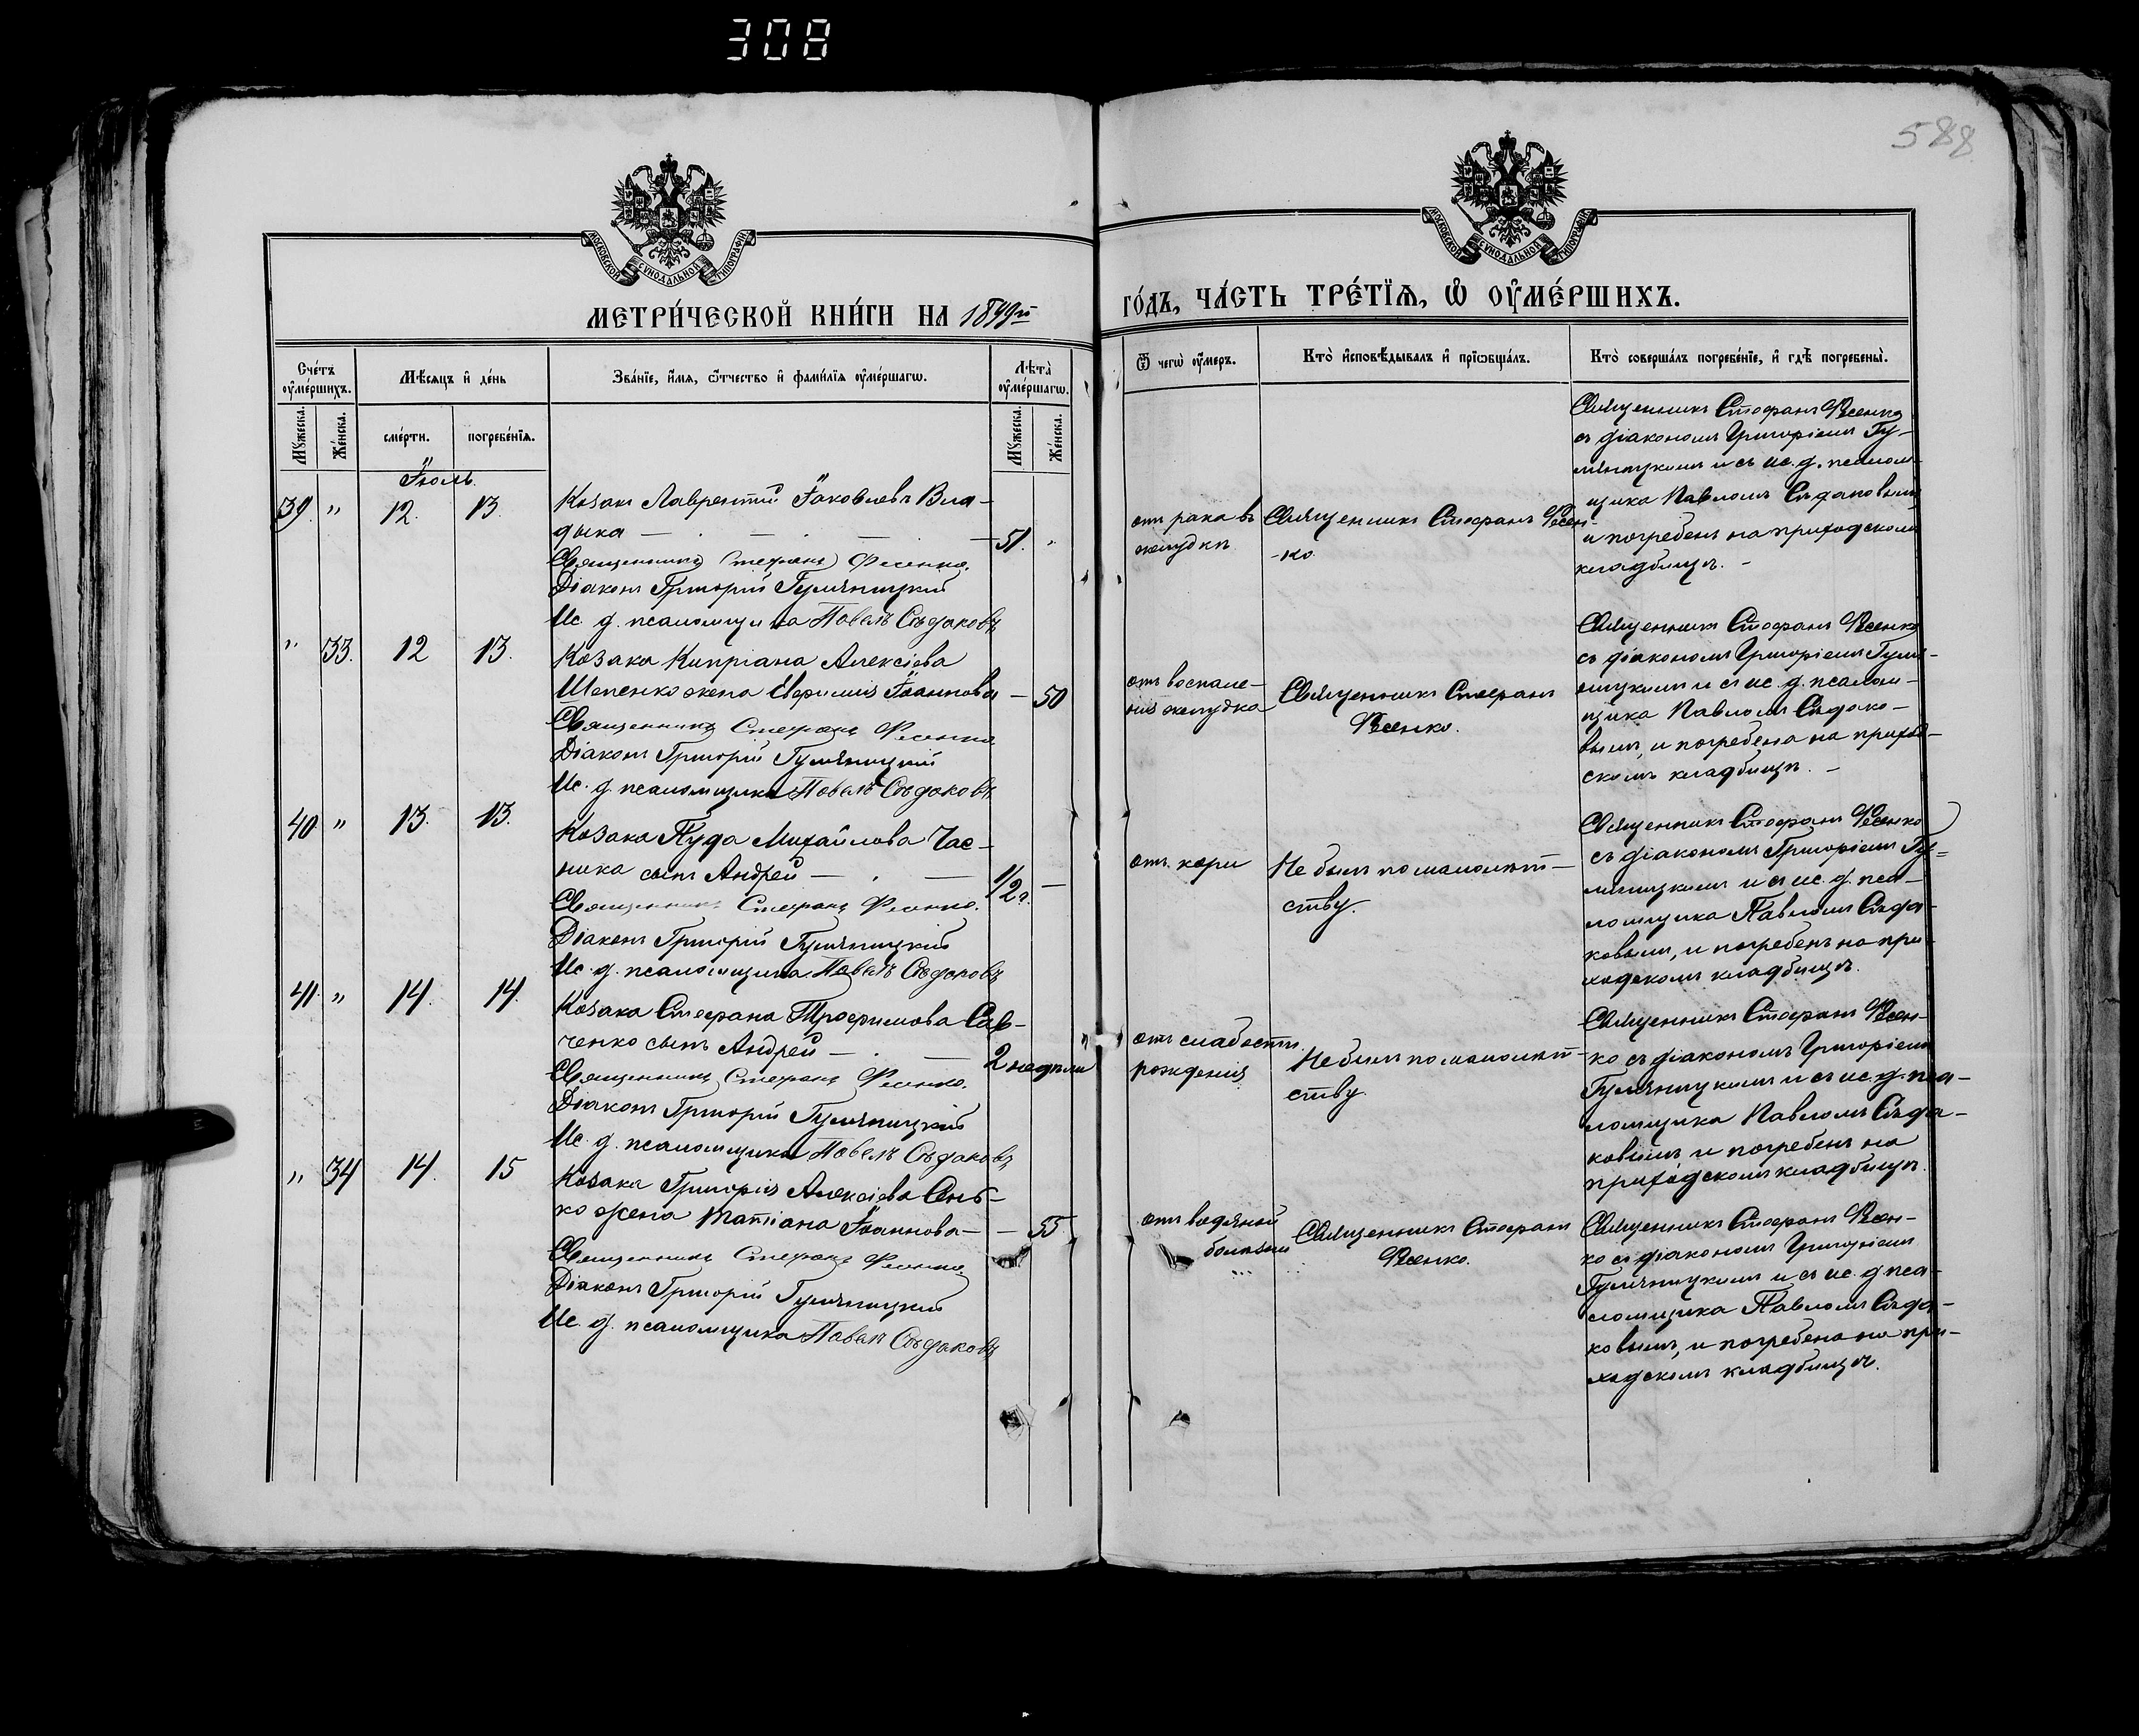 308
588
МОСКОВСКОЙ СѴНОДАЛЬНОЙ ТИПОГРАФІИ
МОСКОВСКОЙ СѴНОДАЛЬНОЙ ТИПОГРАФІИ
МЕТРИ́ЧЕСКОЙ КНИ́ГИ НА 1899й
ГО́ДЪ, ЧА́СТЬ ТРЕ́ТЇѦ, Ѡ ОУ҆МЕ́РШИХЪ.
Сче́тъ оу҆ме́ршихъ.
Мѣ́сяцъ и҆ де́нь
Зва́нїе, и҆́мѧ, ѻ҆́тчество и҆ фами́лїѧ оу҆ме́ршагѡ.
Лѣ́та оу҆ме́ршагѡ.
Мꙋ́жеска.
Же́нска.
сме́рти.
погребе́нїѧ.
Мꙋ́жеска.
Же́нска.
Ѿ чегѡ̀ оу҆́меръ.
Кто̀ и҆сповѣ́дывалъ и҆ прїѡбща́лъ.
Кто̀ соверша́лъ погребе́нїе, и҆ гдѣ̀ погребены̀.
Іюль.
39. " 12. 13.
Козакъ Лаврентій Іаковлевъ Вла-
дыка — . — . — — 51. "
Священникъ Стефанъ Фесенко.
Діаконъ Григорій Гумяницкій
Ис. д. псаломщика Павелъ Сѣдаковъ
отъ рака въ
желудкѣ
Священникъ Стефанъ Фесен-
-ко.
Священникъ Стефанъ Фесенко
съ діакономъ Григоріемъ Гу-
мяницкимъ и съ ис. д. псалом-
щика Павломъ Сѣдаковымъ
и погребенъ на приходскомъ
кладбищѣ. -
" 33. 12 13.
Козака Кипріана Алексіева
Шепенко жена Евфимія Іоаннова — 50
Священникъ Стефанъ Фесенко
Діаконъ Григорій Гумяницкій
Ис. д. псаломщика Павелъ Сѣдаковъ
отъ воспале-
нія желудка
Священникъ Стефанъ
Фесенко.
Священникъ Стефанъ Фесенко
съ діакономъ Григоріемъ Гумя-
ницкимъ и съ ис. д. псалом-
щика Павломъ Сѣдако-
вымъ, и погребена на приход-
скомъ кладбищѣ. -
40. " 13. 13.
Козака Пуда Михайлова Час-
ника сынъ Андрей — . — 1/2 г. —
Священникъ Стефанъ Фесенко.
Діаконъ Григорій Гумяницкій
Ис. д. псаломщика Павелъ Сѣдаковъ
отъ кори
Не былъ по малолѣт-
ству.
Священникъ Стефанъ Фесенко
съ діакономъ Григоріемъ Гу-
мяницкимъ и съ ис. д. пса-
ломщика Павломъ Сѣда-
ковымъ, и погребенъ на при-
ходскомъ кладбищѣ.
41. " 14. 14.
Козака Стефана Трофимова Сав-
ченко сынъ Андрей — . — 2 недѣли "
Священникъ Стефанъ Фесенко.
Діаконъ Григорій Гумяницкій
Ис. д. псаломщика Павелъ Сѣдаковъ
отъ слабости
рожденія
Не былъ по малолѣт-
ству.
Священникъ Стефанъ Фесен-
ко съ діакономъ Григоріемъ
Гумяницкимъ и съ ис. д. пса-
ломщика Павломъ Сѣда-
ковымъ и погребенъ на
приходскомъ кладбищѣ.
" 34 14. 15
Козака Григорія Алексіева
жена Татіана Іоаннова — — 55
Священникъ Стефанъ Фесенко.
Діаконъ Григорій Гумяницкій
Ис. д. псаломщика Павелъ Сѣдаковъ
отъ водяной
болѣзни
Священникъ Стефанъ
Фесенко.
Священникъ Стефанъ Фесен-
ко съ діакономъ Григоріемъ
Гумяницкимъ и съ ис. д. пса-
ломщика Павломъ Сѣда-
ковымъ, и погребена на при-
ходскомъ кладбищѣ.